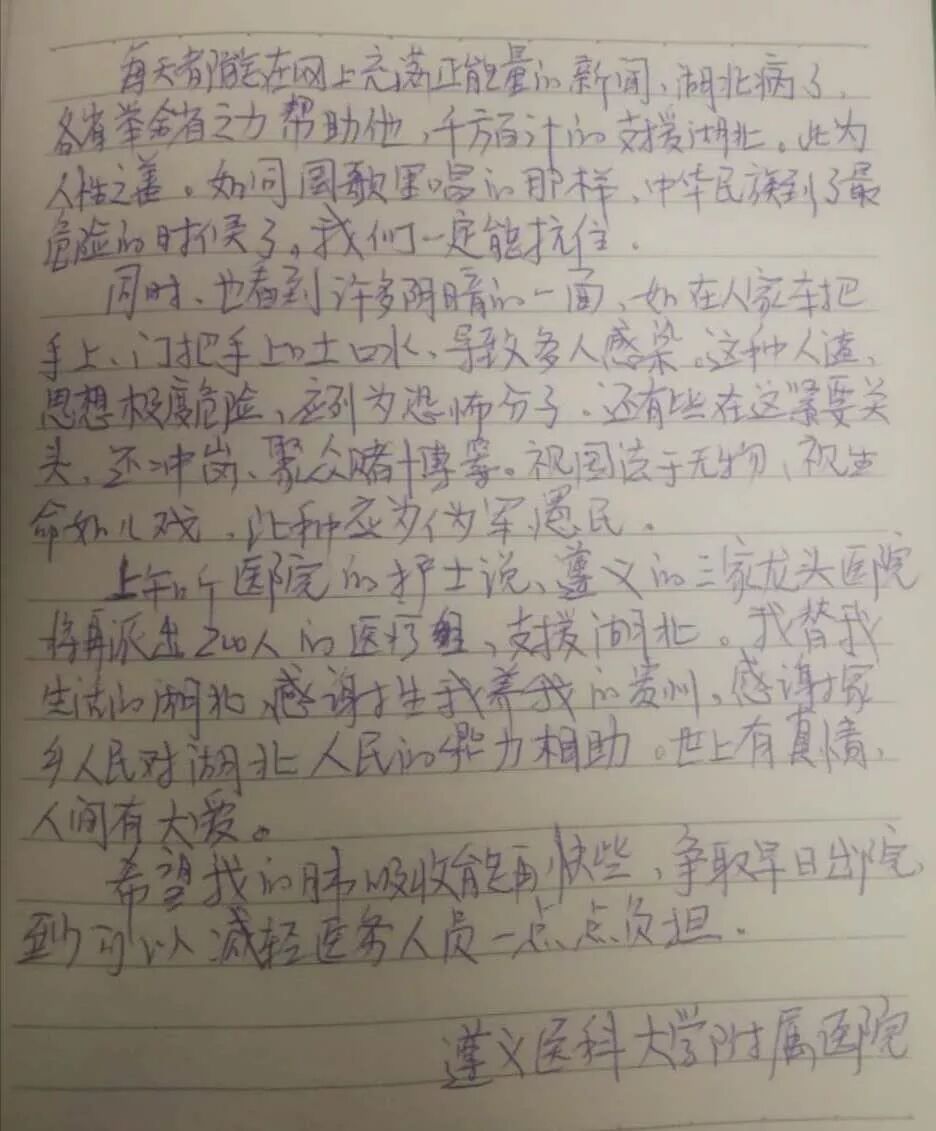 每天都能在网上充满正能量的新闻，湖北病了，
各省举全省之力帮助他，千方百计的支援湖北。此为
人性之善。如同国歌里唱的那样，中华民族到了最
危险的时候了。我们一定能抗住.
同时、也看到许多阴暗的一面，如在人家车把
手上、门把手上的土口水、导致多人感染。这种人渣、
思想极度危险，应列为恐怖分子.还有些在这紧要关
头，还冲岗、聚众赌博等。视国法于无物、视生
命如儿戏，此种应为伪军愚民。
上午听医院的护士说、遵义的三家龙头医院
将再派出200人的医疗组，支援湖北。我替我
生活的湖北，感谢生我养我的贵州，感谢家
乡人民对湖北人民的鼎力相助。世上有真情，
人间有大爱。
希望我的肺吸收能再快些，争取早日出院，
至少可以减轻医务人员一点点负担.
遵义医科大学附属医院